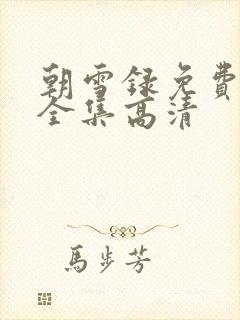 朝雪録免費
全集高清
馬步芳